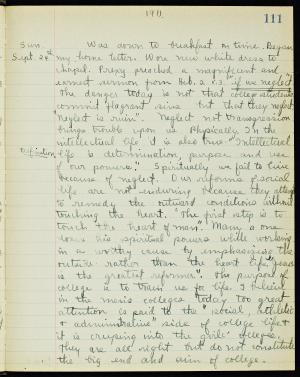 1911
111
Sun. Was down to breakfast on time. Began
Sept. 24th my home letter. Wore new white dress to
chapel. Prexy preached a magnificent and
earnest sermon from Heb. 2 v. 3 "if we neglect"
The danger today is not that college students
commit flagrant sins but that they neglect
"Neglect is ruin". Neglect not transgression
brings trouble upon us Physically. In the
intellectual life, it is also true. "Intellectual
Definition life is determination, purpose and use
of our powers". Spiritually we fail to live
because of neglect. Our reforms of social
life are not enduring because they attempt
to remedy the outward conditions without
touching the heart. "The first step is to
touch the heart of man". Many a one
loses his spiritual powers while working
in a worthy cause by emphasizing the
outside rather than the heart life. "Jesus
is the greatest reformer". The purpose of
college is to train us for life. I believe
in the men's colleges today too great
attention is paid to the "social, athletic
& administrative" side of college life &
it is creeping into the girls' colleges.
They are all right but do not constitute
the big end and aim of college.